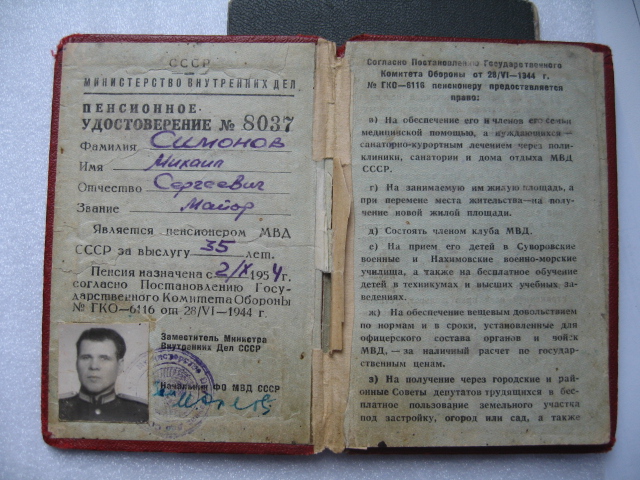 СССР
МИНИСТЕРСТВО ВНУТРЕННИХ ДЕЛ
ПЕНСИОННОЕ
УДОСТОВЕРЕНИЕ № 8037
Фамилия Симонов
Имя Михаил
Отчество Сергеевич
Звание Майор
Является пенсионером МВД
СССР за выслугу 35 лет.
Пенсия назначена с 2/X 1954г.
согласно Постановлению Госу-
дарственного Комитета Обороны
№ ГКО—6116 от 28/VI—1944 г.
Заместитель Министра
Внутренних Дел СССР
Начальник ФО МВД СССР
Согласно Постановлению Государственного
Комитета Обороны от 28/VI—1944 г.
№ ГКО—6116 пенсионеру предоставляется
право:
в) На обеспечение его и членов его семьи
медицинской помощью, а нуждающихся—
санаторно-курортным лечением через поли-
клиники, санатории и дома отдыха МВД
СССР.
г) На занимаемую им жилую площадь, а
при перемене места жительства—на полу-
чение новой жилой площади.
д) Состоять членом клуба МВД.
е) На прием его детей в Суворовские
военные и Нахимовские военно-морские
училища, а также на бесплатное обучение
детей в техникумах и высших учебных за-
ведениях.
ж) На обеспечение вещевым довольствием
по нормам и в сроки, установленные для
офицерского состава органов и войск
МВД, — за наличный расчет по государ-
ственным ценам.
з) На получение через городские и рай-
онные Советы депутатов трудящихся в бес-
платное пользование земельного участка
под застройку, огород или сад, а также